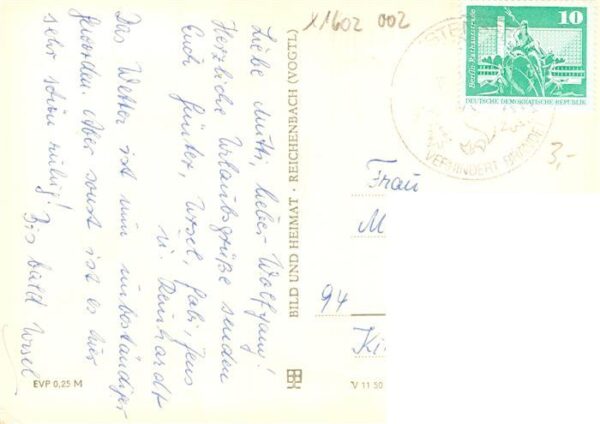 Liebe Mutti, lieber Wolfgang!
Herzliche Urlaubsgrüße senden
Euch Günter, Ursel, Gabi, Jens
u. Reinhardt
Das Wetter ist nun unbeständiger
geworden. Aber sonst ist es hier
sehr schön ruhig! Bis bald Ursel
EVP 0,25 M
BILD UND HEIMAT · REICHENBACH (VOGTL)
V 11 50
X1602 002
10
Berlin, Rathausstraße
DEUTSCHE DEMOKRATISCHE REPUBLIK
VERHINDERT
3,-
Frau
M
94
Ki